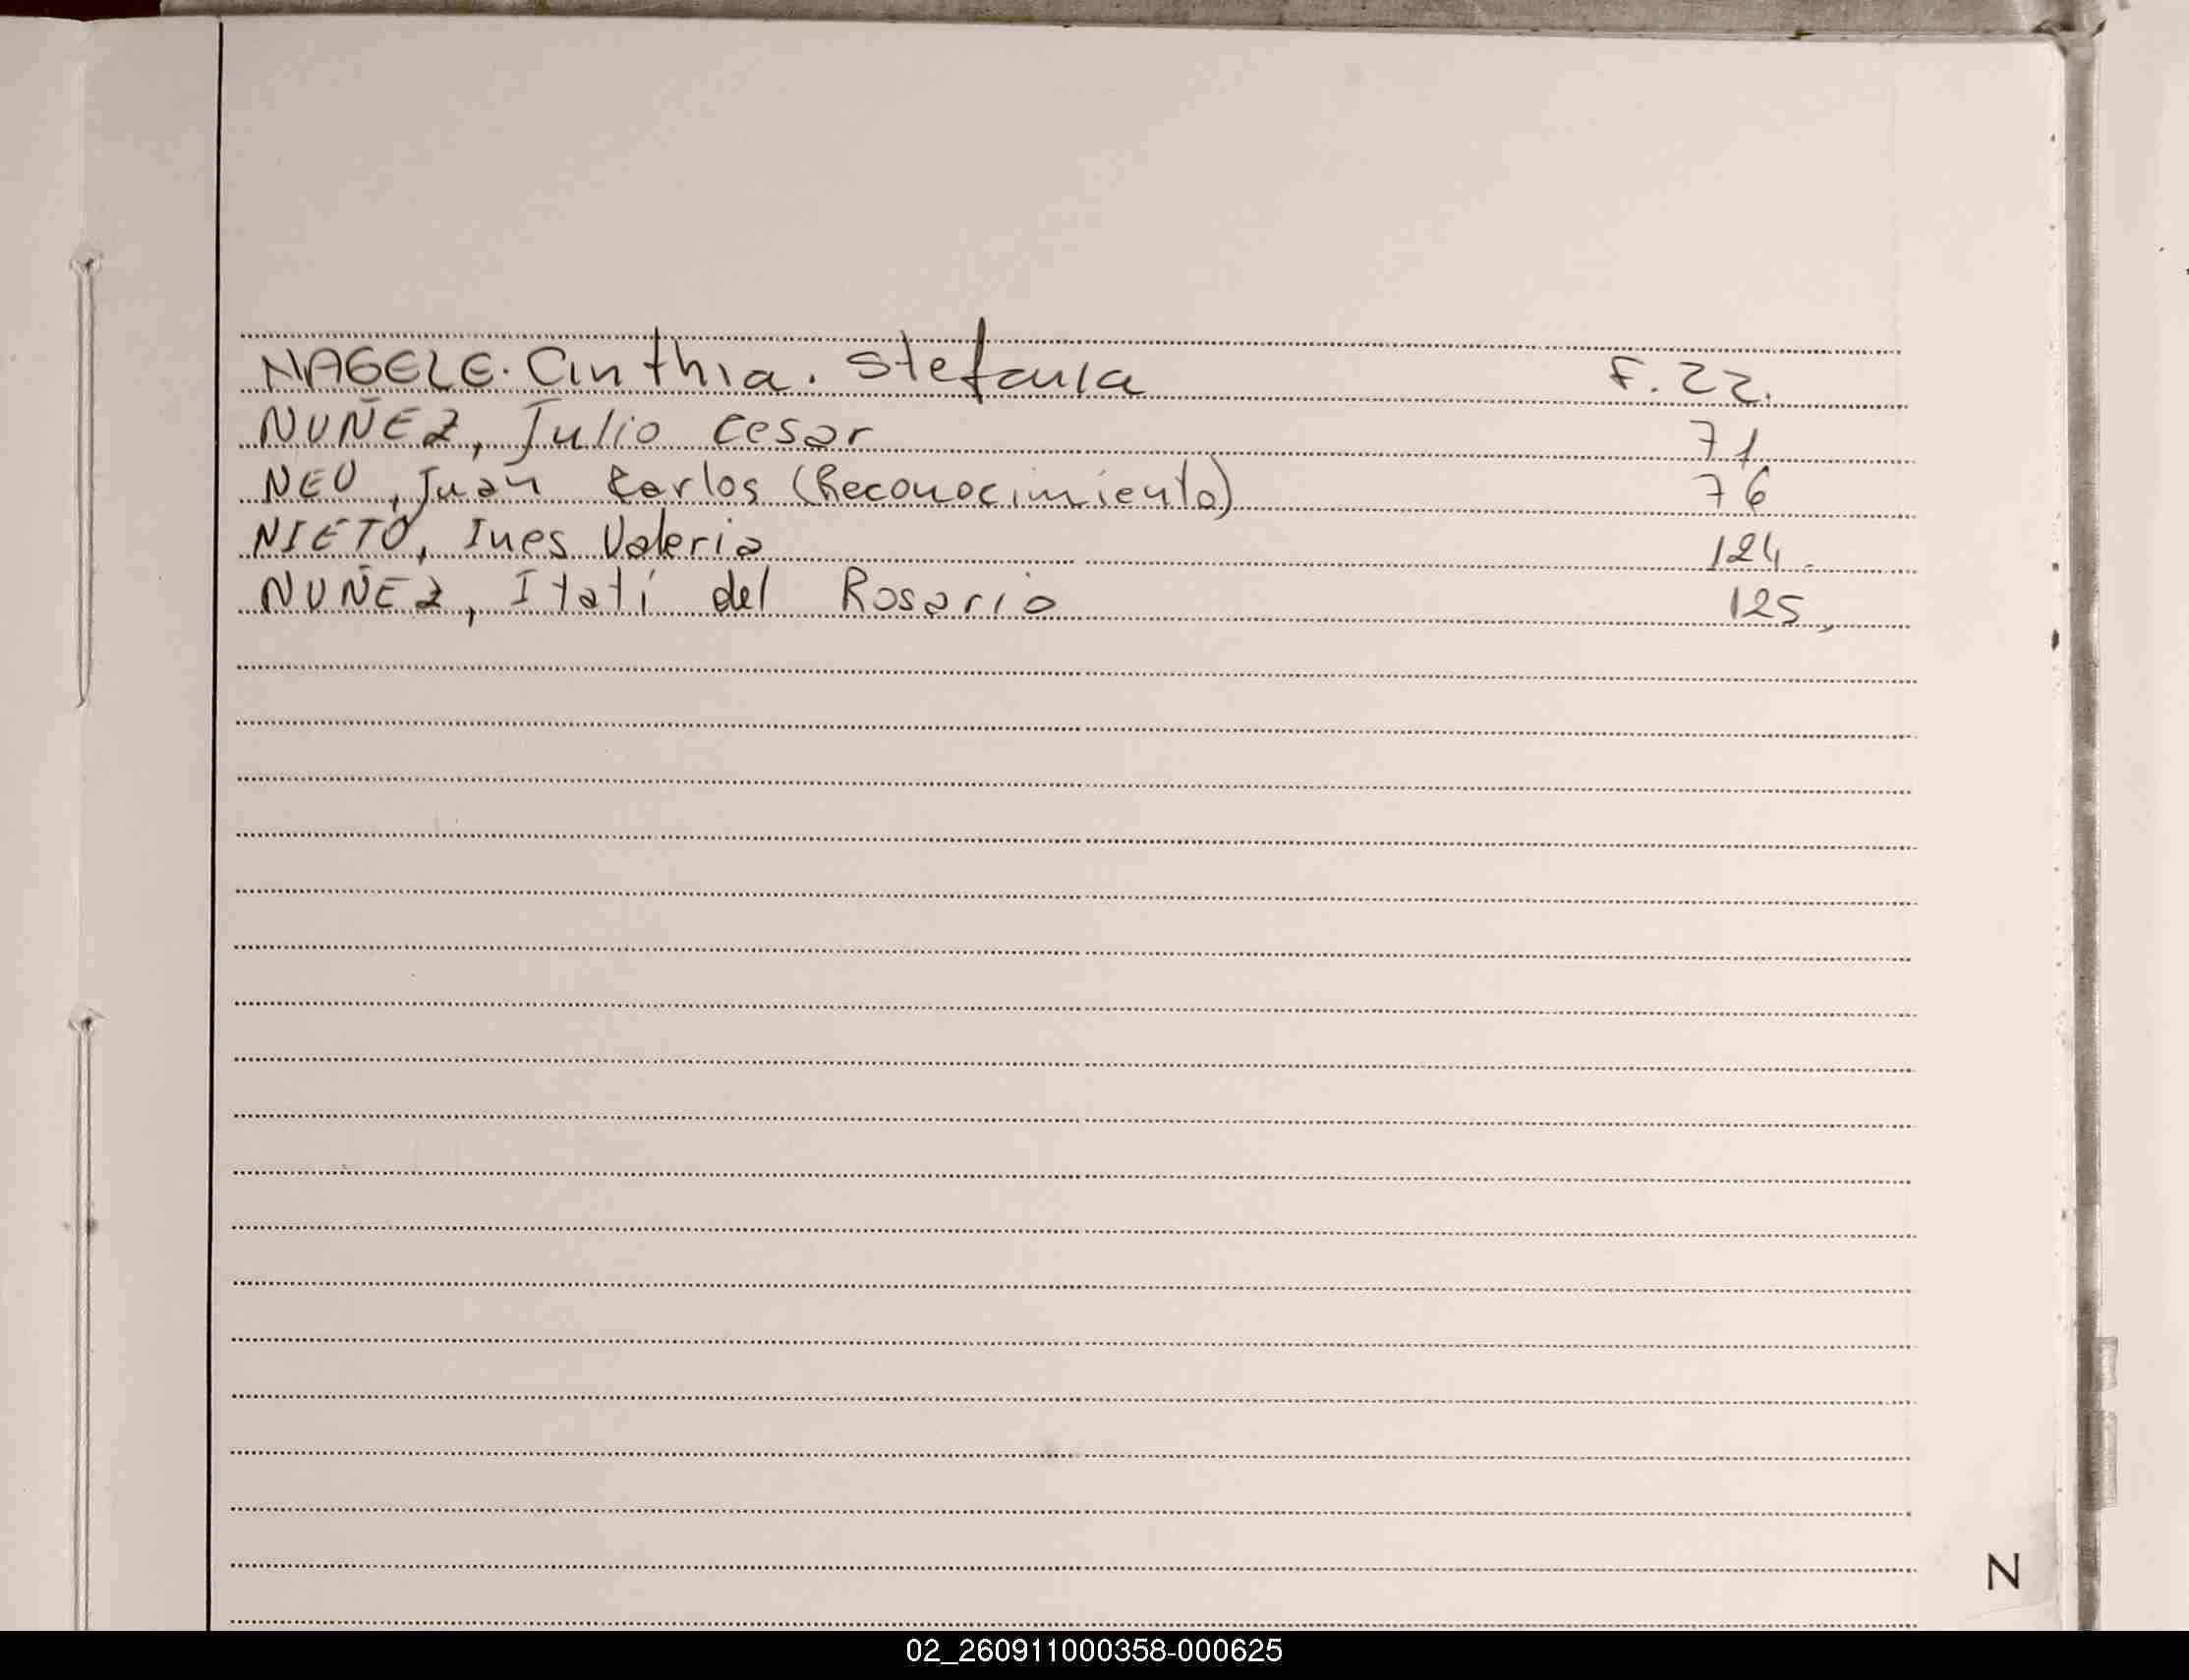 NAGELE. Cinthia. Stefania F. 22.
NUÑEZ, Julio Cesar 71
NEU, Juan Carlos (Reconocimiento) 76
NIETO, Ines Valeria 124.
NUÑEZ, Itatí del Rosario 125,
N
02_260911000358-000625